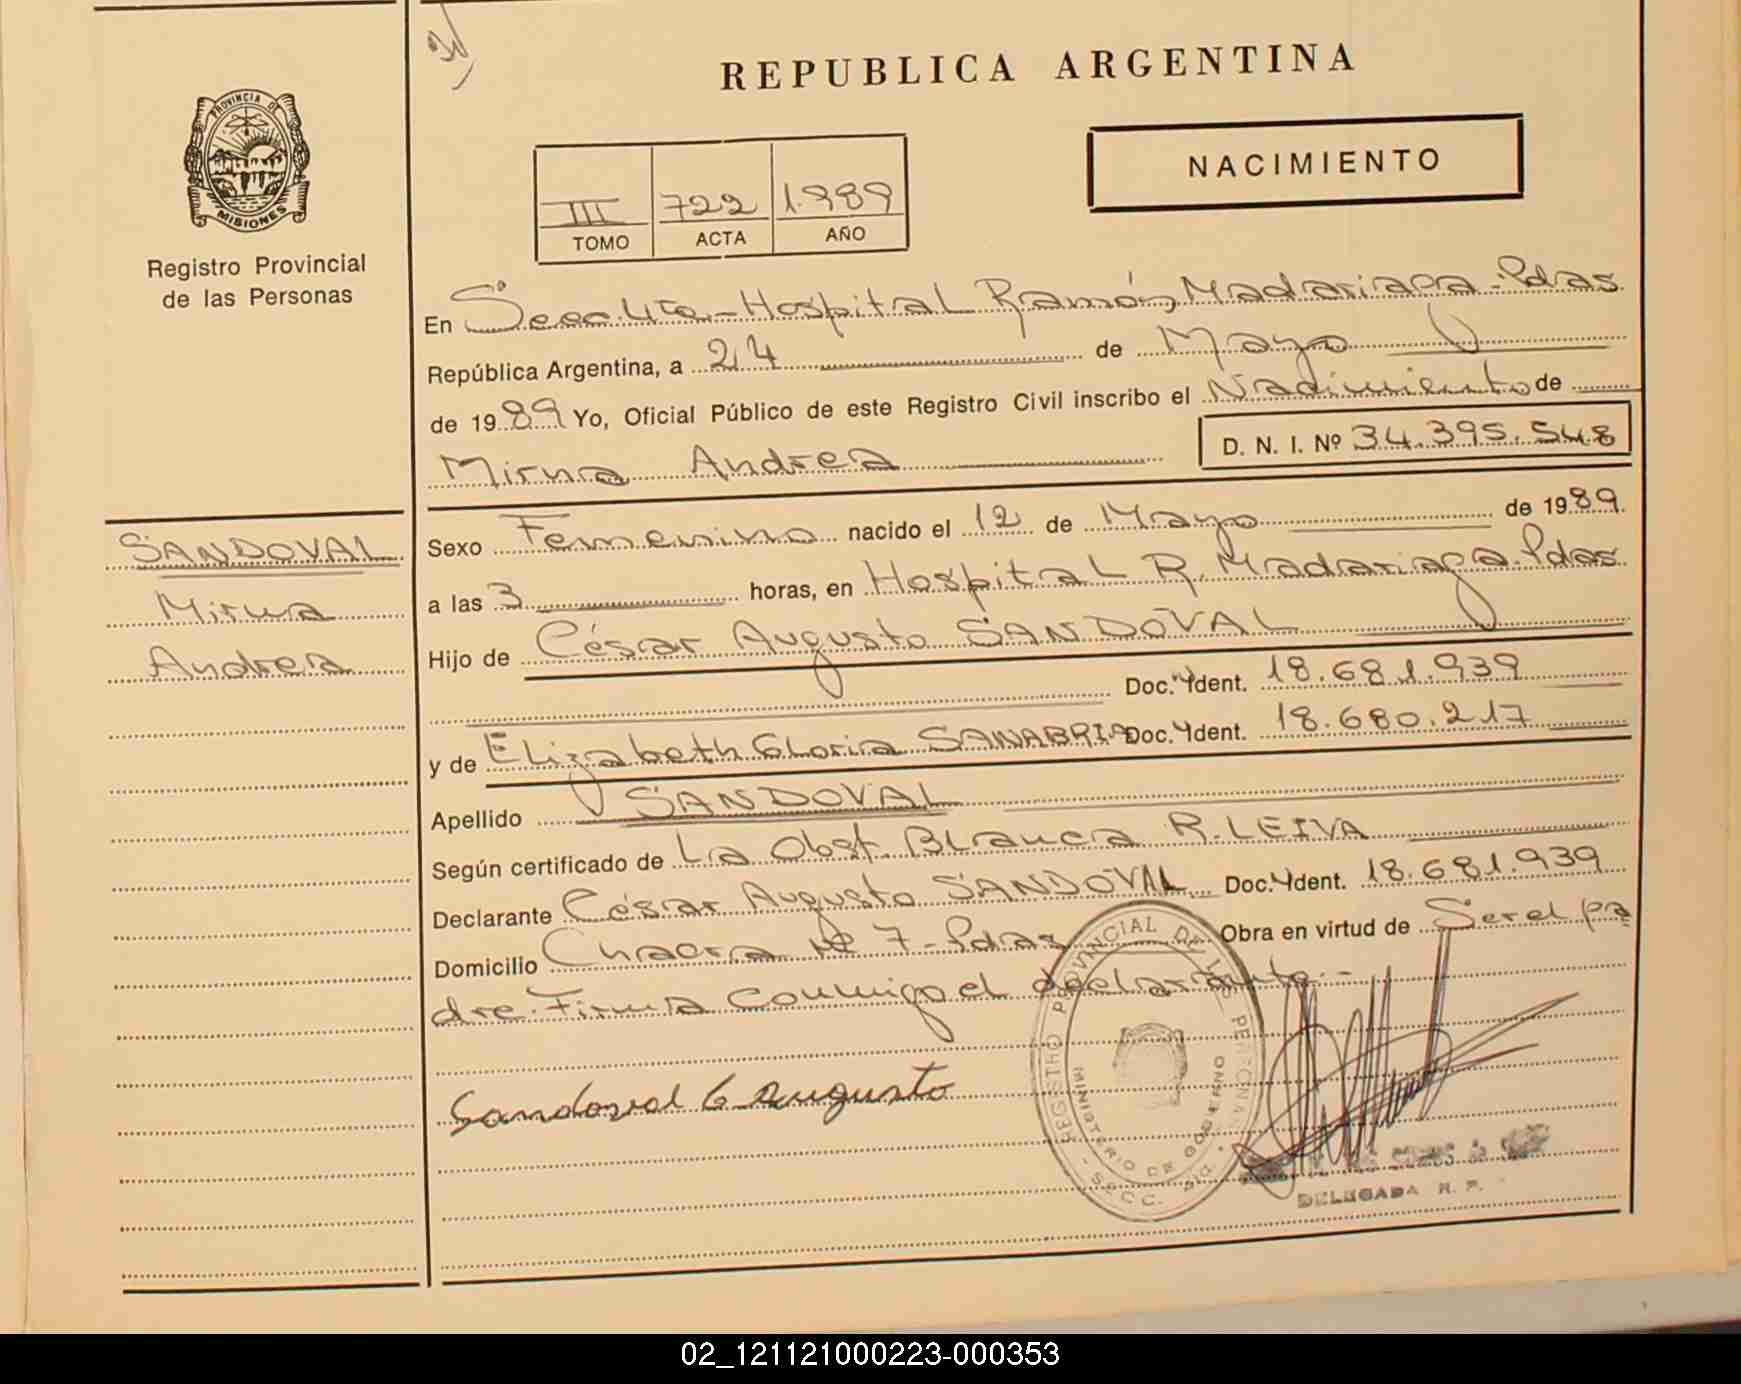 REPUBLICA ARGENTINA
PROVINCIA DE
MISIONES
Registro Provincial
de las Personas
NACIMIENTO
III 722 1.989
TOMO ACTA AÑO
En Secc. 4ta - Hospital Ramón Madariaga - Pdas
República Argentina, a 24 de Mayo
de 1989 Yo, Oficial Público de este Registro Civil inscribo el Nacimiento de
Mirna Andrea
D. N. I. Nº 34.395.548
SANDOVAL
Mirna
Andrea
Sexo Femenino nacido el 12 de Mayo de 1989
a las 3 horas, en Hospital R. Madariaga. Pdas
Hijo de César Augusto SANDOVAL
Doc. Ydent. 18.681.939
y de Elizabeth Gloria SANABRIA Doc. Ydent. 18.680.217
Apellido SANDOVAL
Según certificado de La Obst. Blanca R. LEIVA
Declarante César Augusto SANDOVAL Doc. Ydent. 18.681.939
Domicilio Chacra Nº 7 - Pdas Obra en virtud de Ser el pa
dre. Firma Conmigo el declarante.-
Sandoval C Augusto
REGISTRO PROVINCIAL DE LAS PERSONAS
MINISTERIO DE GOBIERNO
SECC.
DELEGADA R. P.
02_121121000223-000353